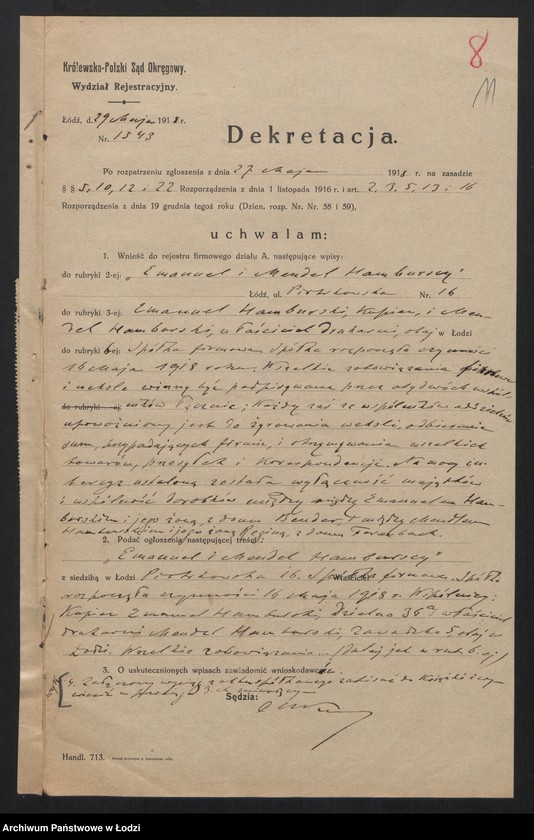 8
11
Królewsko-Polski Sąd Okręgowy.
Wydział Rejestracyjny.
Łódź, d. 29 Maja 1918 r.
Nr. 1543
Dekretacja.
Po rozpatrzeniu zgłoszenia z dnia 27 Maja 1918 r. na zasadzie
§ § 5, 10, 12 i 22 Rozporządzenia z dnia 1 listopada 1916 r. i art. 2, 3, 5, 13 i 16
Rozporządzenia z dnia 19 grudnia tegoż roku (Dzien. rozp. Nr. Nr. 58 i 59),
uchwalam:
1. Wnieść do rejestru firmowego działu A, następujące wpisy:
do rubryki 2-ej: „Emanuel i Mendel Hamburscy"
Łódź, ul. Piotrkowska Nr. 16
do rubryki 3-ej: Emanuel Hamburski, Kupiec, i Men-
del Hamburski, właściciel drukarni, obaj w Łodzi
do rubryki 6-ej: Spółka firmowa. Spółka rozpoczęła czynności
16 Maja 1918 roku. Wszelkie zobowiązania
i weksle winny być podpisywane przez obydwóch wspól-
do rubryki -ej ników łącznie; Każdy zaś ze wspólników oddzielnie
upoważniony jest do żyrowania weksli, odbierania
sum, przypadających firmie, i otrzymywania wszelkich
towarów, przesyłek i Korespondencji. Na mocy in-
tercyz ustaloną została wyłączność majątków
i wspólność dorobków między Emanuelem Ham-
burskim i jego żoną z domu Bender, i między Mendlem
Hamburskim i jego żoną Reginą z domu
2. Podać ogłoszenia następującej treści:
„Emanuel i Mendel Hamburscy"
z siedzibą w Łodzi Piotrkowska 16. Właściciel Spółka firmowa. Spółka
rozpoczęła czynności 16 Maja 1918 r. Wspólnicy:
Kupiec Emanuel Hamburski, Dzielna 36 i właściciel
drukarni Mendel Hamburski, Zawadzka obaj w
Łodzi. Wszelkie zobowiązania (dalej jak w rubr. 6-ej)
3. O uskutecznionych wpisach zawiadomić wnioskodawców.
4. Załączony wyciąg z aktu
Sędzia:
Handl. 713.
Archiwum Państwowe w Łodzi